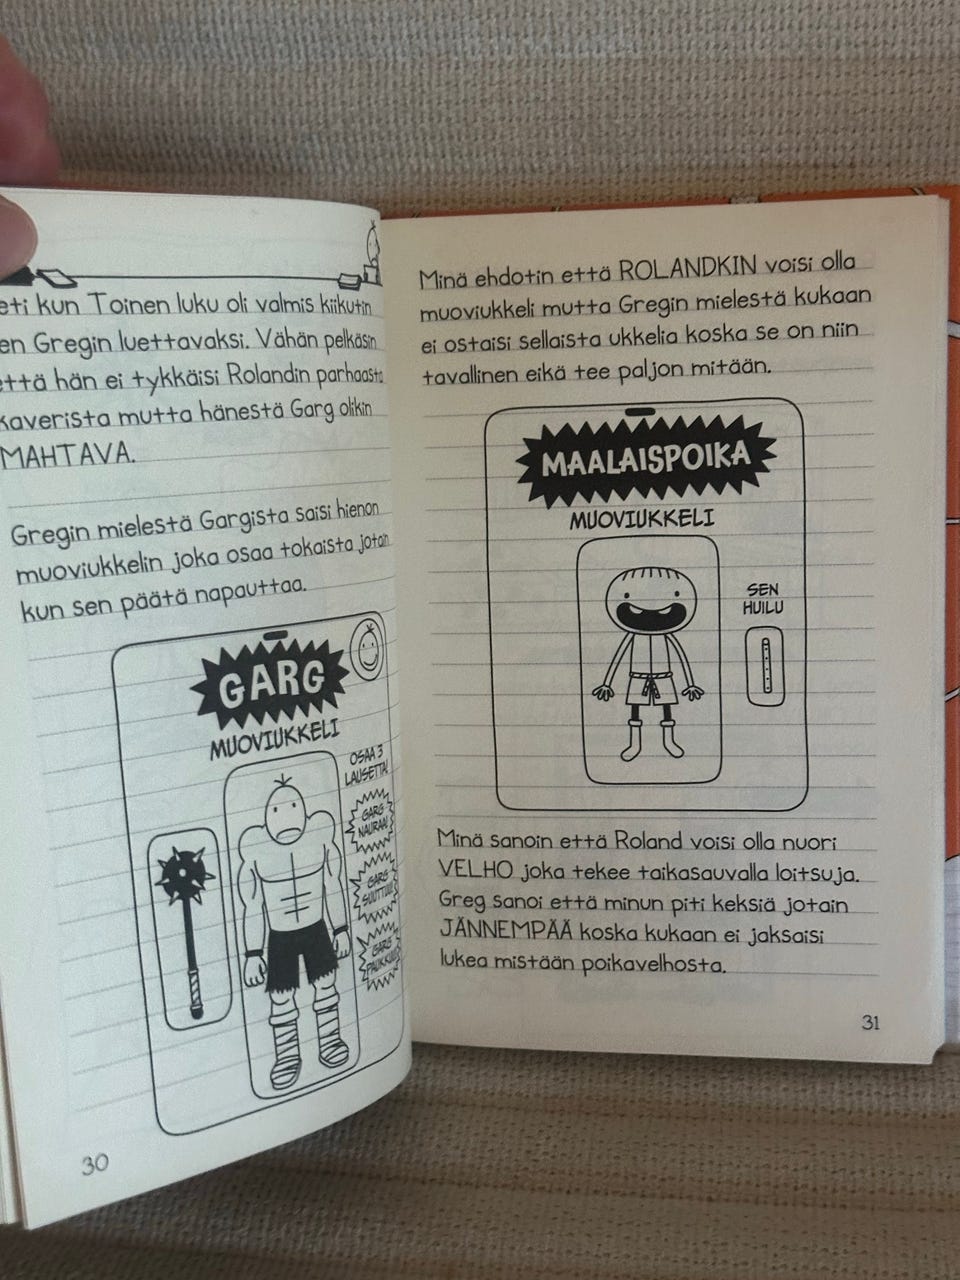 eti kun Toinen luku oli valmis kiikutin
en Gregin luettavaksi. Vähän pelkäsin
että hän ei tykkäisi Rolandin parhaasta
kaverista mutta hänestä Garg olikin
MAHTAVA.
Gregin mielestä Gargista saisi hienon
muoviukkelin joka osaa tokaista jotain
kun sen päätä napauttaa.
GARG
MUOVIUKKELI
OSAA 3
LAUSETTA!
GARG
NAURAA!
GARG
SUUTTUU!
GARG
30
Minä ehdotin että ROLANDKIN voisi olla
muoviukkeli mutta Gregin mielestä kukaan
ei ostaisi sellaista ukkelia koska se on niin
tavallinen eikä tee paljon mitään.
MAALAISPOIKA
MUOVIUKKELI
SEN
HUILU
Minä sanoin että Roland voisi olla nuori
VELHO joka tekee taikasauvalla loitsuja.
Greg sanoi että minun piti keksiä jotain
JÄNNEMPÄÄ koska kukaan ei jaksaisi
lukea mistään poikavelhosta.
31